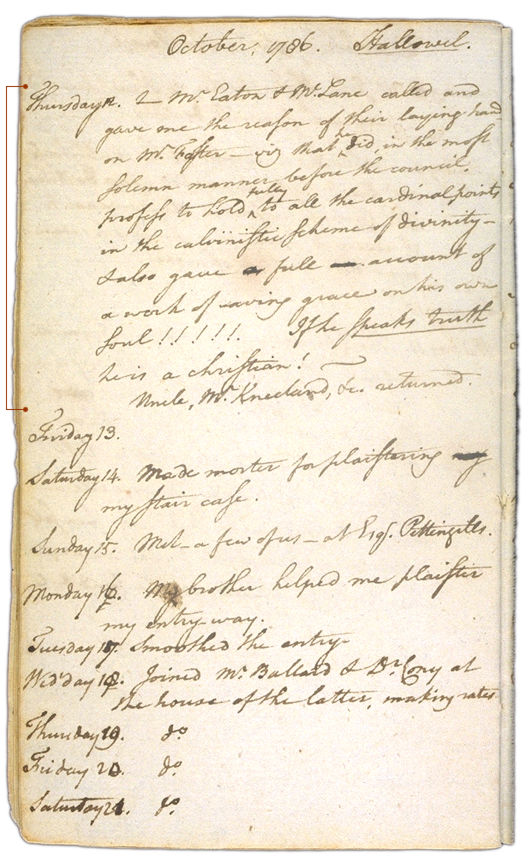 October, 1786. Hallowel.
Thursday 12. Mr Eaton & Mr Lane called and
gave me the reason of their laying hand
on Mr Foster — viz that he did, in the most
solemn manner before the council
profess to hold fully to all the cardinal points
in the calvinistic scheme of divinity —
& also gave full account of
a work of saving grace on his own
soul !!!!!! If he speaks truth
he is a christian!
Uncle, Mr Kneeland, &c. returned.
Friday 13.
Saturday 14. Made morter for plaistering
my stair case.
Sunday 15. Met — a few of us — at Esqr. Pettingills.
Monday 16. My brother helped me plaister
my entry-way.
Tuesday 17. Smoothed the entry-
Wed'day 18. Joined Mr Ballard & Dr Cony at
the house of the latter, making rates
Thursday 19. do
Friday 20. do.
Saturday 21. do